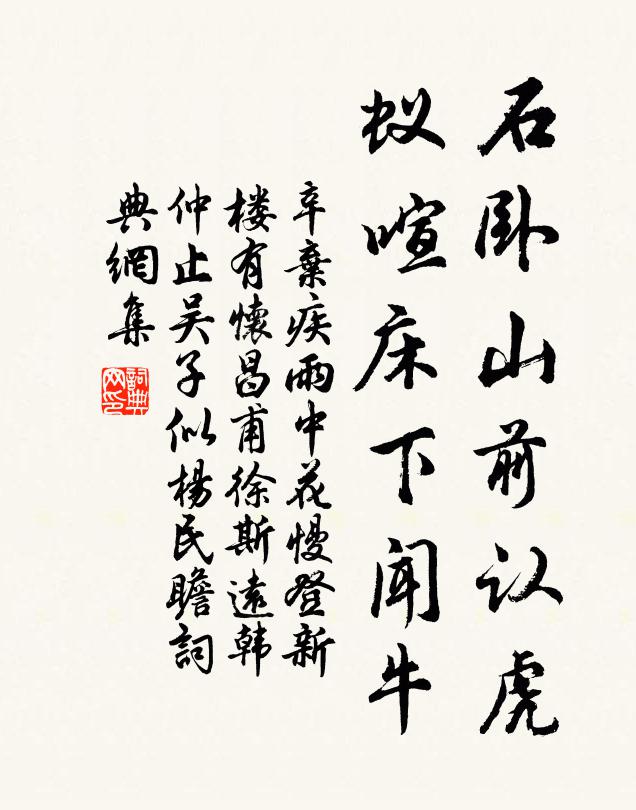 石卧山前认虎
蚁喧床下闻牛
辛棄疾雨中花慢登新
楼有懷昌甫徐斯遠韩
仲止吴子似楊民瞻詞
典網集
詞典
网印